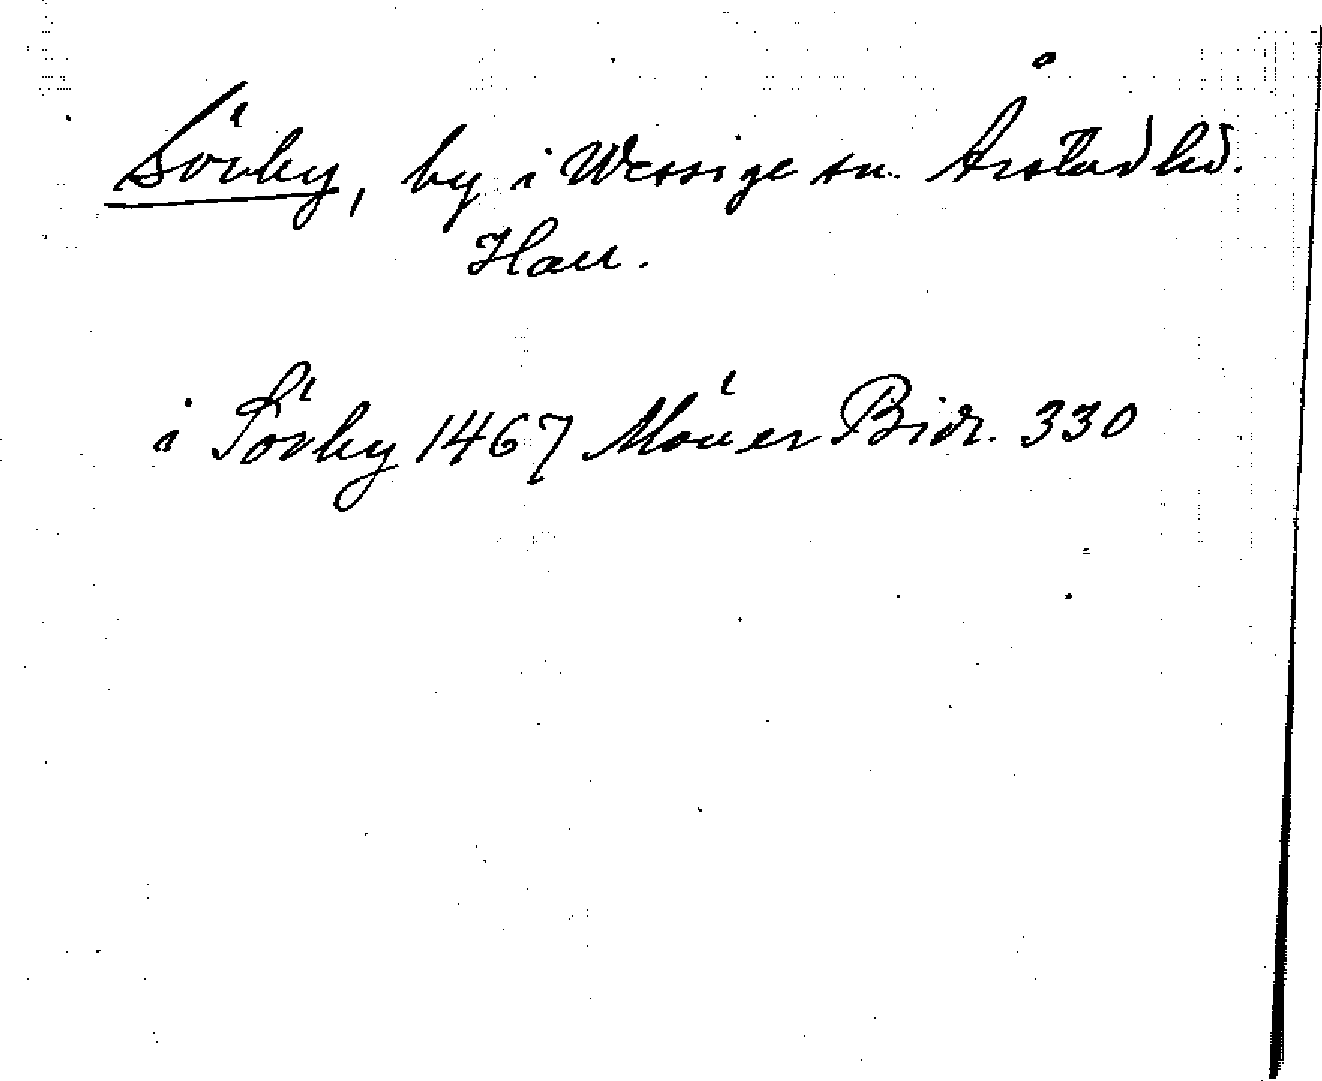 Sörby, by i Wessige sn. Årstad hd.
Hall.
i Sörby 1467 Möller Bidr. 330